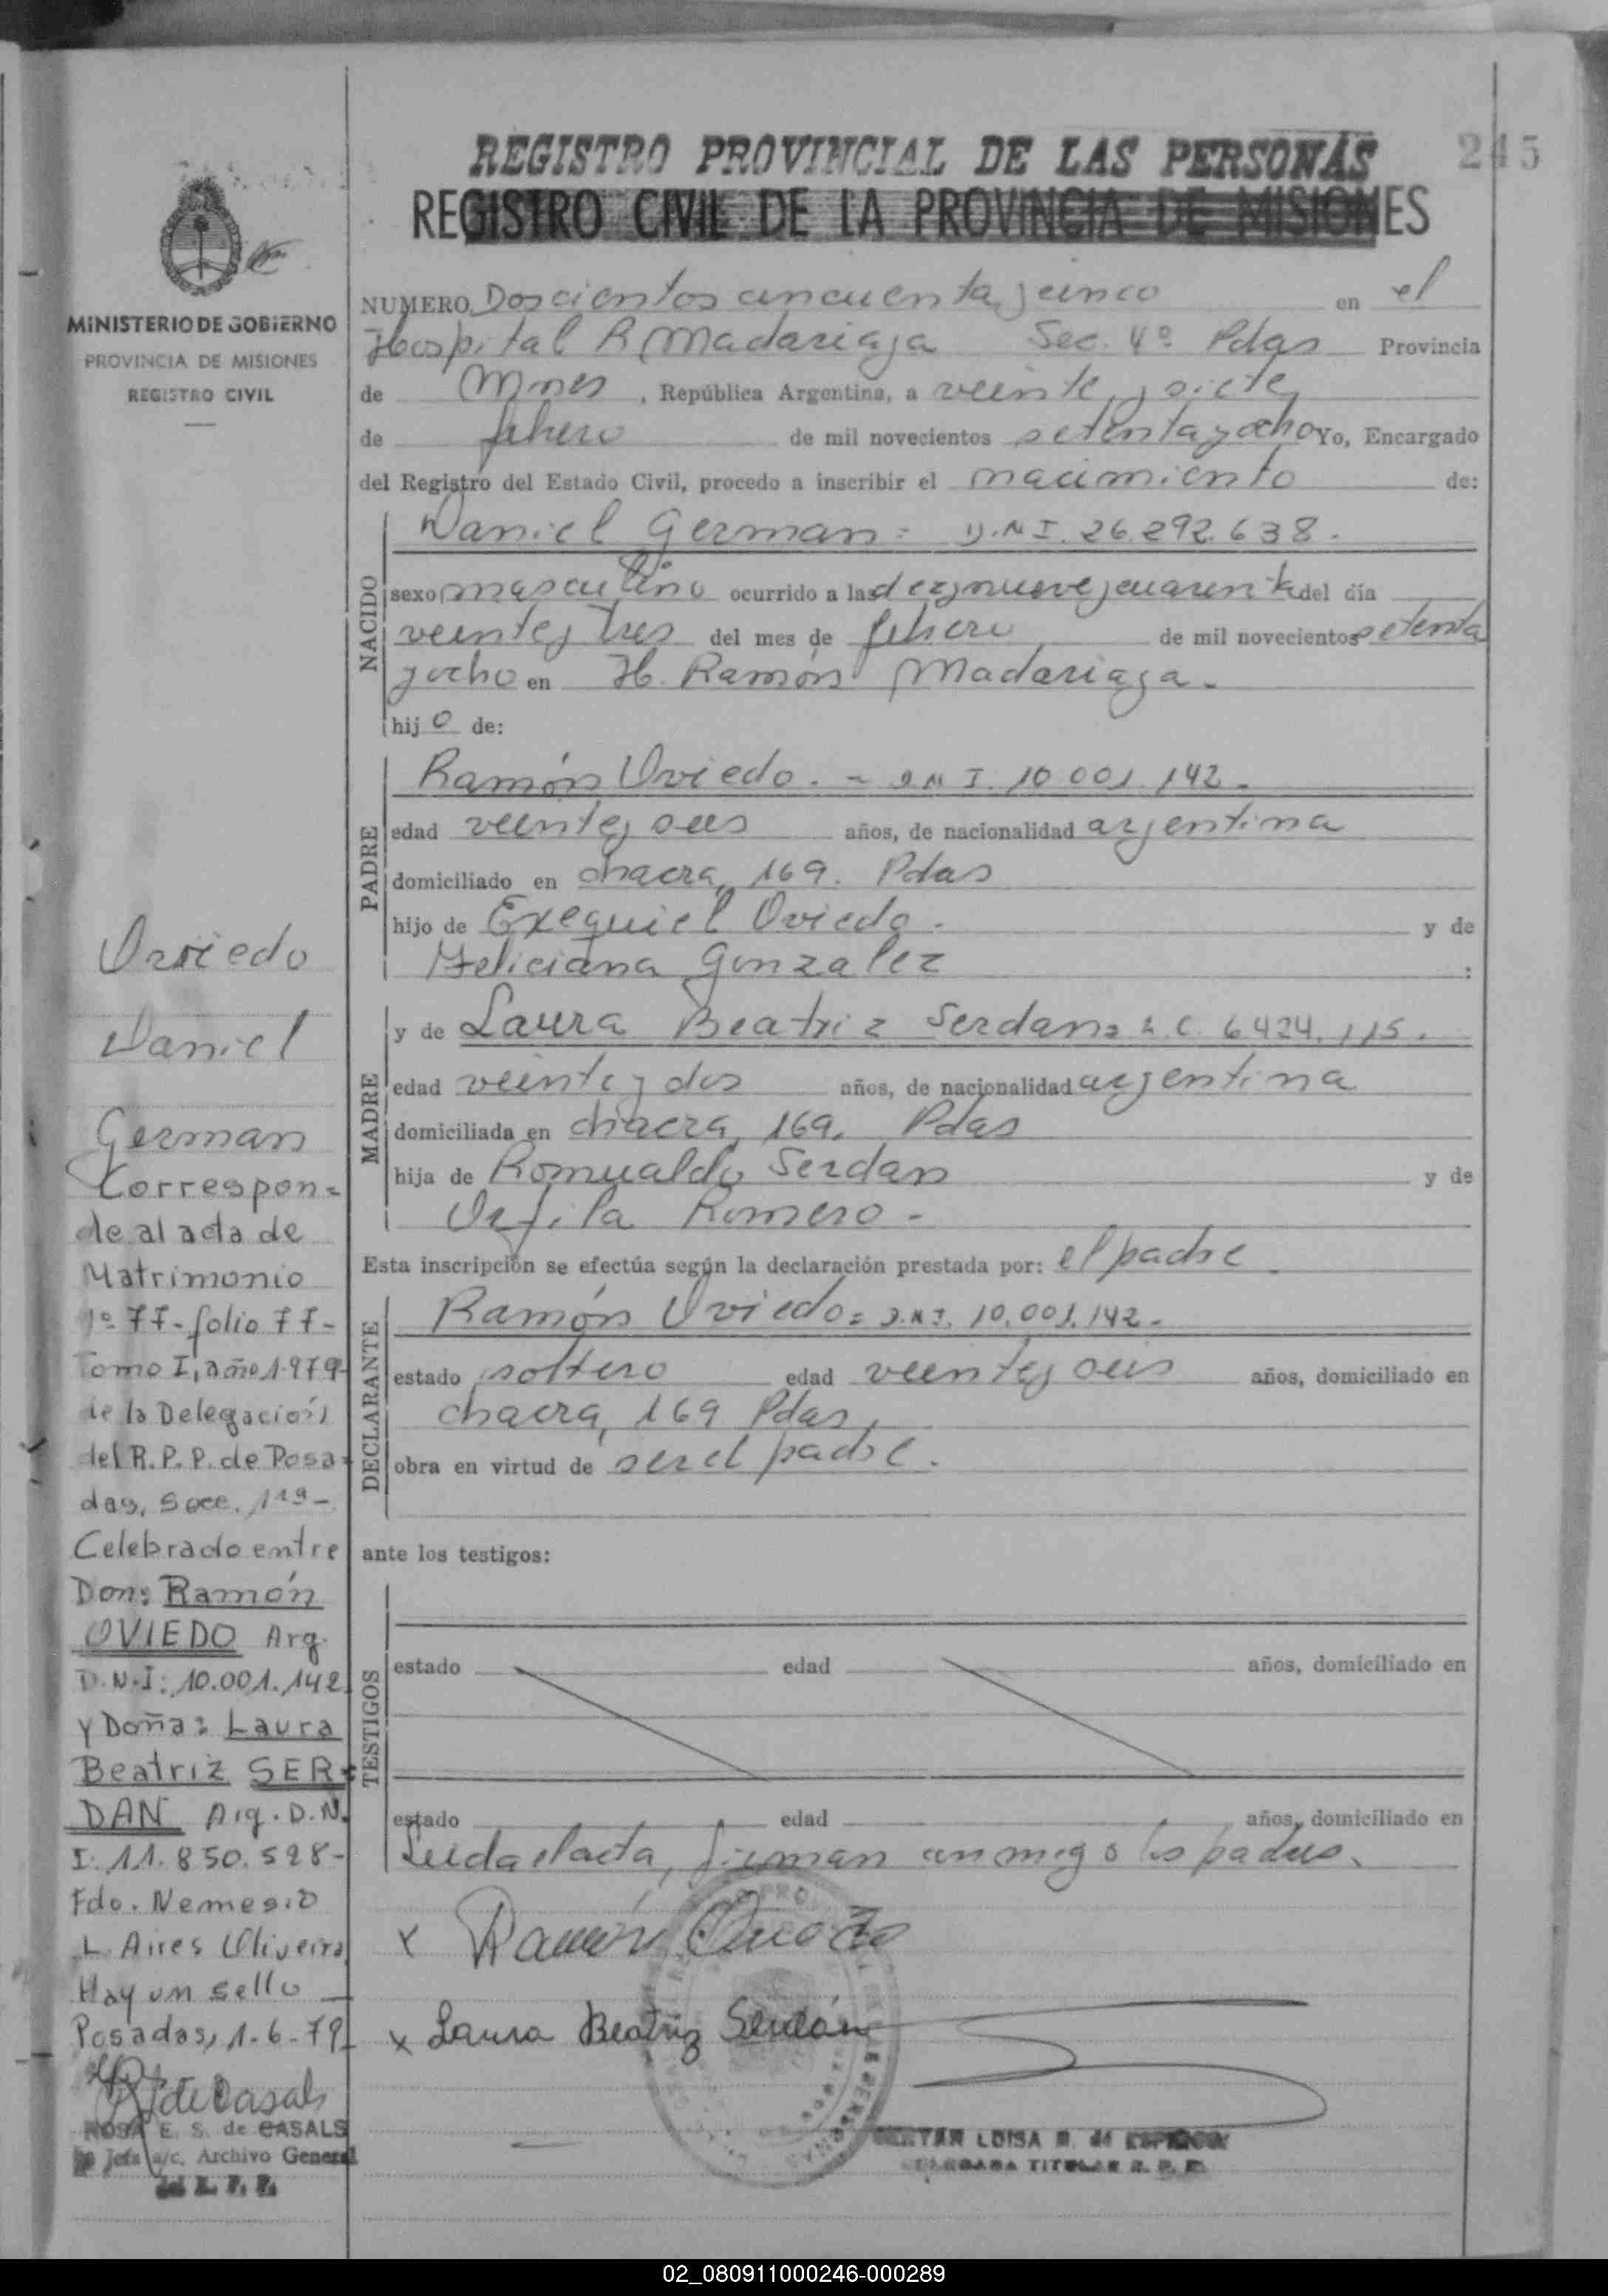 245
REGISTRO PROVINCIAL DE LAS PERSONAS
REGISTRO CIVIL DE LA PROVINCIA DE MISIONES
MINISTERIO DE GOBIERNO
PROVINCIA DE MISIONES
REGISTRO CIVIL
NUMERO Doscientos cincuenta y cinco en el
Hospital R Madariaga Sec. 4º Pdas Provincia
de Mnes, República Argentina, a veinte y siete
de febrero de mil novecientos setenta y ocho Yo, Encargado
del Registro del Estado Civil, procedo a inscribir el nacimiento de:
NACIDO
Daniel German = D.N I. 26.292.638.
sexo masculino ocurrido a las diez y nueve y cuarenta del día
veinte y tres del mes de febrero de mil novecientos setenta
y ocho en H. Ramón Madariaga.
hijo de:
PADRE
Ramón Oviedo. = D.N I. 10 001.142.
edad veinte y seis años, de nacionalidad argentina
domiciliado en chacra 169. Pdas
hijo de Exequiel Oviedo. y de
Feliciana Gonzalez :
MADRE
y de Laura Beatriz Serdan = L.C. 6424.115.
edad veinte y dos años, de nacionalidad argentina
domiciliada en chacra 169. Pdas
hija de Romualdo Serdan y de
Orfila Romero -
Esta inscripción se efectúa según la declaración prestada por: el padre.
DECLARANTE
Ramón Oviedo = D.N.I. 10.001.142.
estado soltero edad veinte y seis años, domiciliado en
chacra 169 Pdas,
obra en virtud de ser el padre.
ante los testigos:
TESTIGOS
estado edad años, domiciliado en
estado edad años, domiciliado en
Leida el acta, firman conmigo los padres.
x Ramón Oviedo
x Laura Beatriz Serdán
LUISA
TITULAR R. P. P.
Oviedo
Daniel
German
Correspon=
de al acta de
Matrimonio
nº 77- folio 77-
Tomo I, año 1.979-
de la Delegación
del R.P.P. de Posa=
das, Secc. 1ra-
Celebrado entre
Don: Ramón
OVIEDO Arg.
D.N.I: 10.001.142
y Doña: Laura
Beatriz SER=
DAN Arg. D.N.
I: 11.850.528-
Fdo. Nemesio
L. Aires Oliveira
Hay un sello
Posadas, 1-6-79
R de Casals
ROSA E. S. de CASALS
Jefa a/c. Archivo General
del R. P. P.
02_080911000246-000289